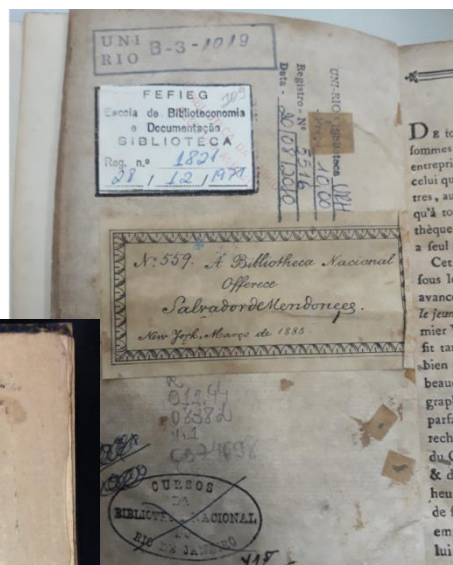 UNI
RIO B-3-1019
FEFIEG
Escola de Biblioteconomia
e Documentação
BIBLIOTECA
Reg. n.º 1821
28 / 12 / 1971
UNI-RIO Biblioteca
Registro - Nº 5516
Data - 20/08/2010
10,00
Nº 559. Á Bibliotheca Nacional
Offerece
Salvador de Mendonça.
New York, Março de 1885
CURSOS
DA
BIBLIOTECA NACIONAL
RIO DE JANEIRO
DE to
sommes
entrepri
celui qu
tres, au
qu'à to
thèque
a seul
Cet
sous le
avanc
le jeun
mier V
fit tan
bien
beauc
graph
parfa
rech
du C
& d
heu
de f
em
lui